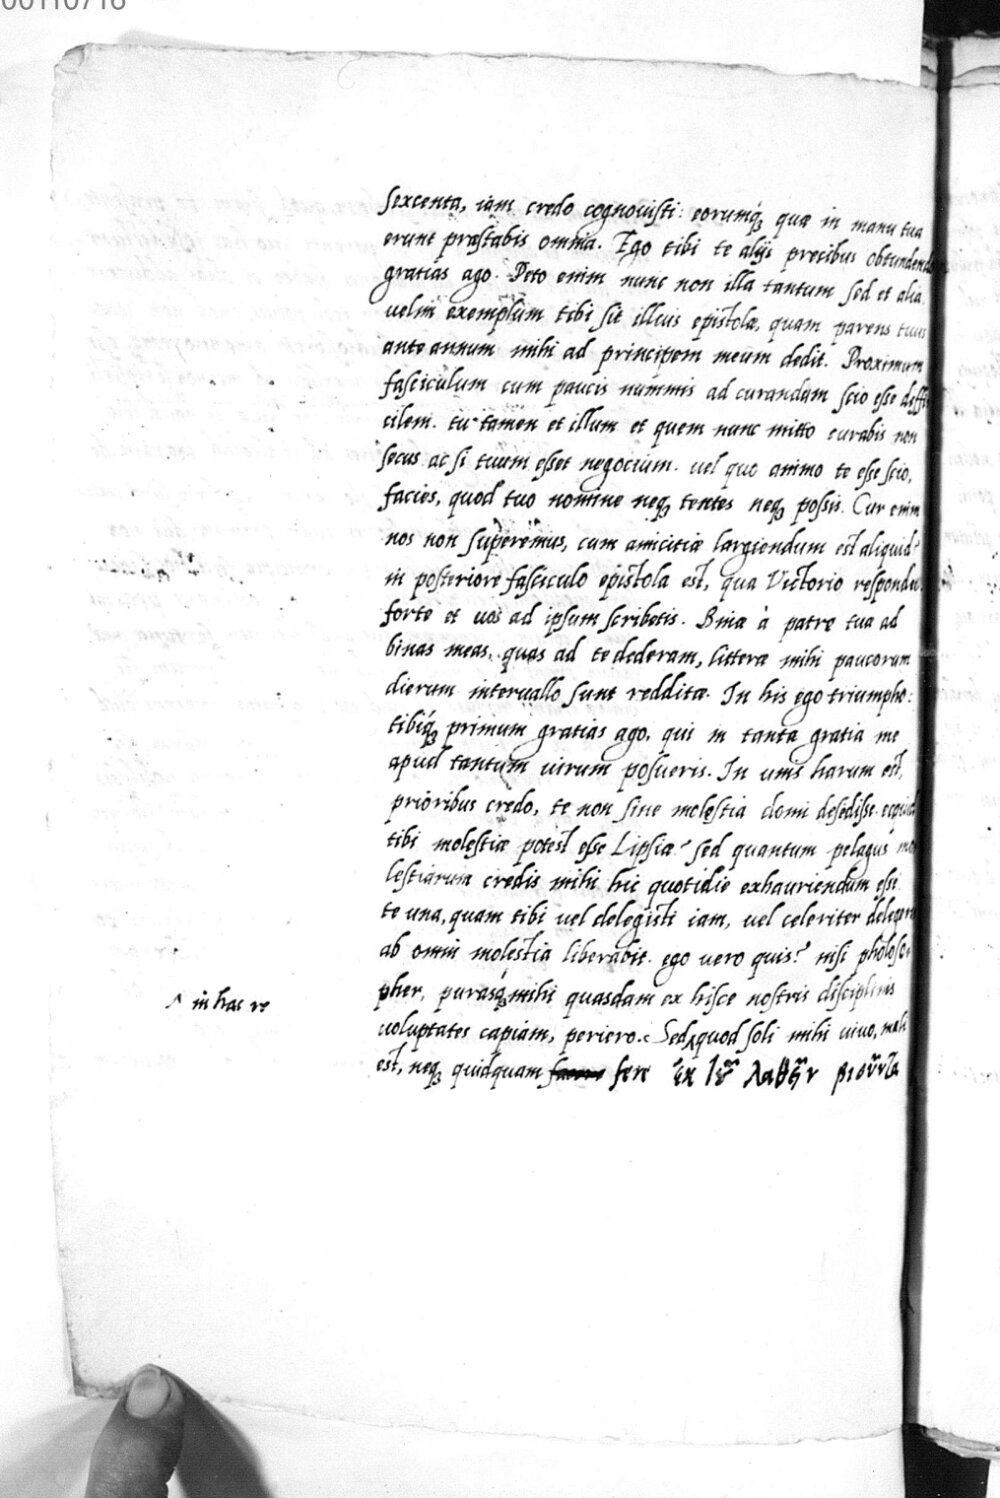 00110716
sexcenta, iam credo cognouisti: eorumq́ꝫ quæ in manu tua
erunt præstabis omnia. Ego tibi te alijs precibus obtundendi
gratias ago. Peto enim nunc non illa tantum sed et alia.
uelim exemplum tibi sit illius epistolæ, quam parens tuus
ante annum mihi ad principem meum dedit. Proximum
fasciculum cum paucis nummis ad curandam scio esse diffi
cilem. tu tamen et illum et quem nunc mitto curabis non
secus ac si tuum esset negocium. uel quo animo te esse scio,
facies, quod tuo nomine neqꝫ tentes neqꝫ possis. Cur enim
nos non superemus, cum amicitiæ largiendum est aliquid?
in posteriore fasciculo epistola est, qua Victorio respondeo.
forte et uos ad ipsum scribetis. Binæ à patre tua ad
binas meas, quas ad te dederam, litteræ mihi paucorum
dierum interuallo sunt redditæ. In his ego triumpho:
tibiq́ꝫ primum gratias ago, qui in tanta gratia me
apud tantum uirum posueris. In unis harum est,
prioribus credo, te non sine molestia domi desedisse. ecquid
tibi molestiæ potest esse Lipsiæ? sed quantum pelagus mo
lestiarum credis mihi hic quotidie exhauriendum esse
te una, quam tibi uel delegisti iam, uel celeriter deleges
ab omni molestia liberabit. ego uero quis? nisi
pher, purasq́ꝫ mihi quasdam ex hisce nostris disciplinis
uoluptates capiam, periero. Sed ‸ quod soli mihi uiuo, mali
‸ in hac re
est, neqꝫ quidquam fere ἐκ λαθεῖν βιοῦντα